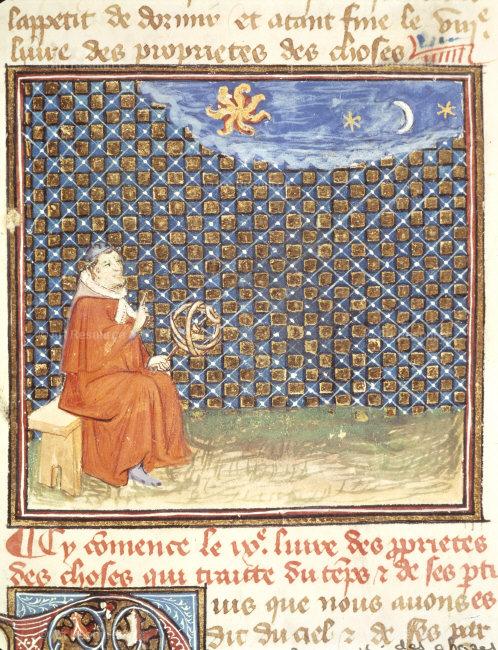 lappetit de dormir et atant fine le viii^e
liure des proprietes des choses
Cy cōmence le ix^e. liure des ꝓprietes
des choses qui traite du tēps ⁊ de ses pti
uis que nous auons es
dit du ciel ⁊ de ses par